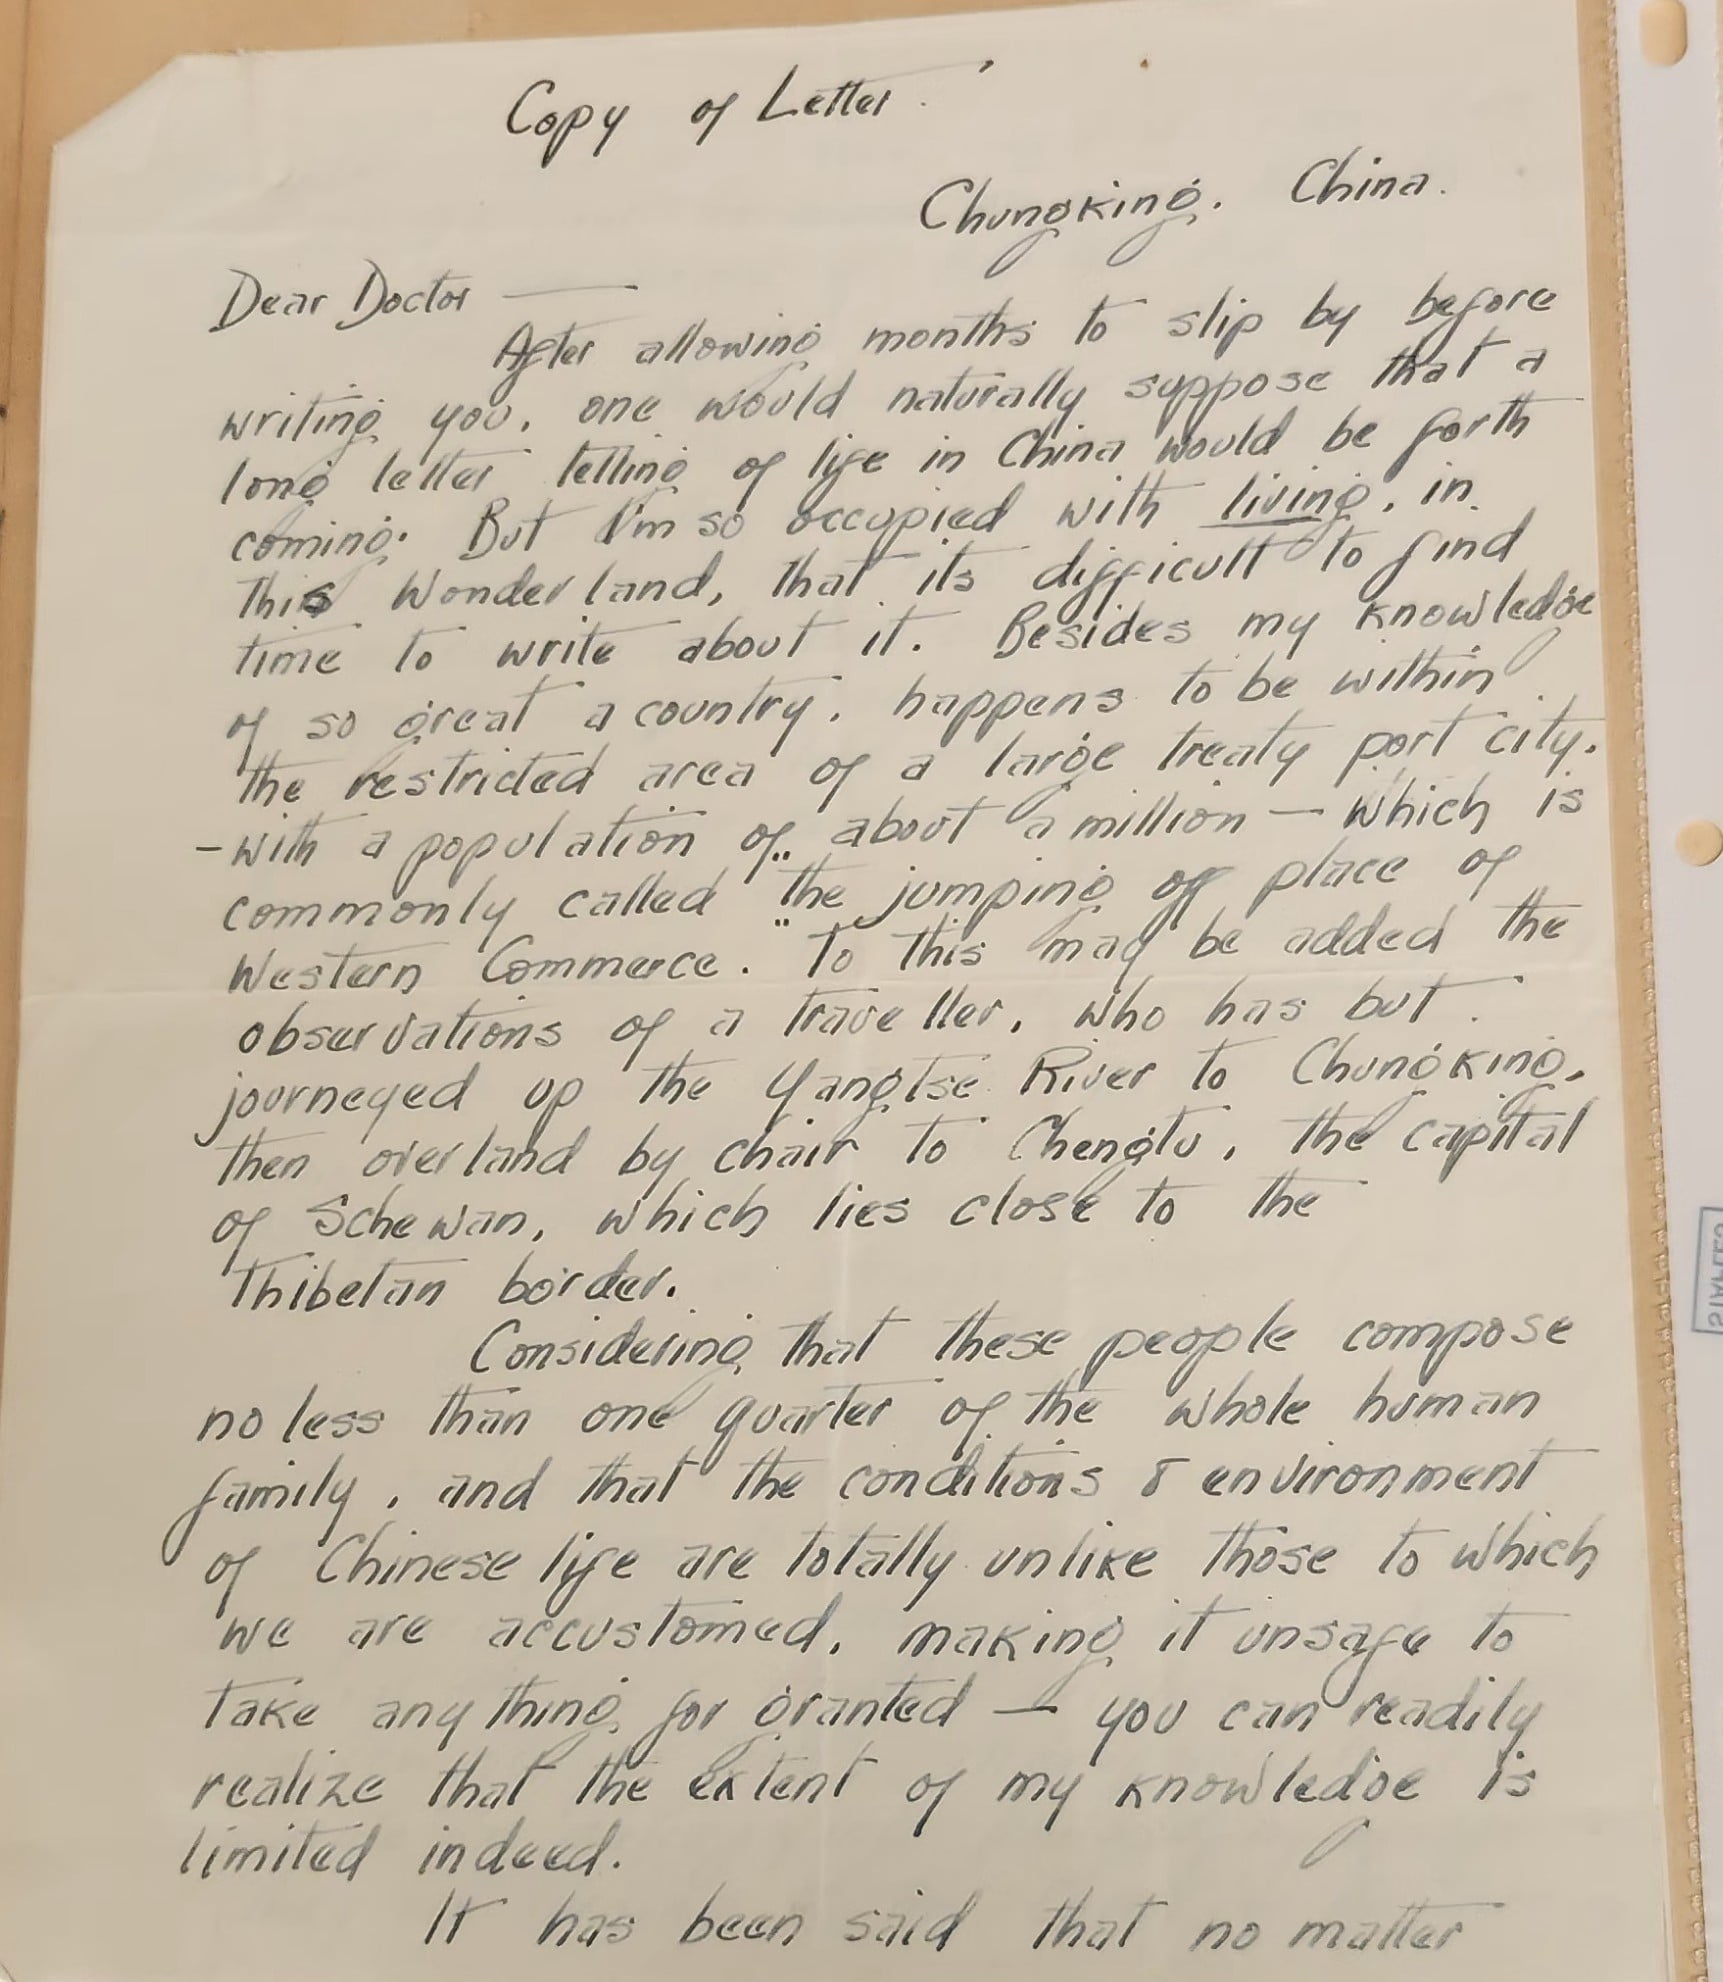 Copy of Letter.
Chungking. China.
Dear Doctor —
After allowing months to slip by before
writing you, one would naturally suppose that a
long letter telling of life in China would be forth
coming. But I'm so occupied with living, in
this Wonderland, that its difficult to find
time to write about it. Besides my knowledge
of so great a country, happens to be within
the restricted area of a large treaty port city.
- with a population of about a million — which is
commonly called "the jumping off place of
Western Commerce." To this may be added the
observations of a traveller, who has but
journeyed up the Yangtse River to Chungking,
then overland by chair to Chengtu, the capital
of Schewan, which lies close to the
Thibetan border.
Considering that these people compose
no less than one quarter of the whole human
family, and that the conditions & environment
of Chinese life are totally unlike those to which
we are accustomed, making it unsafe to
take anything for granted — you can readily
realize that the extent of my knowledge is
limited indeed.
It has been said that no matter
STAPLES